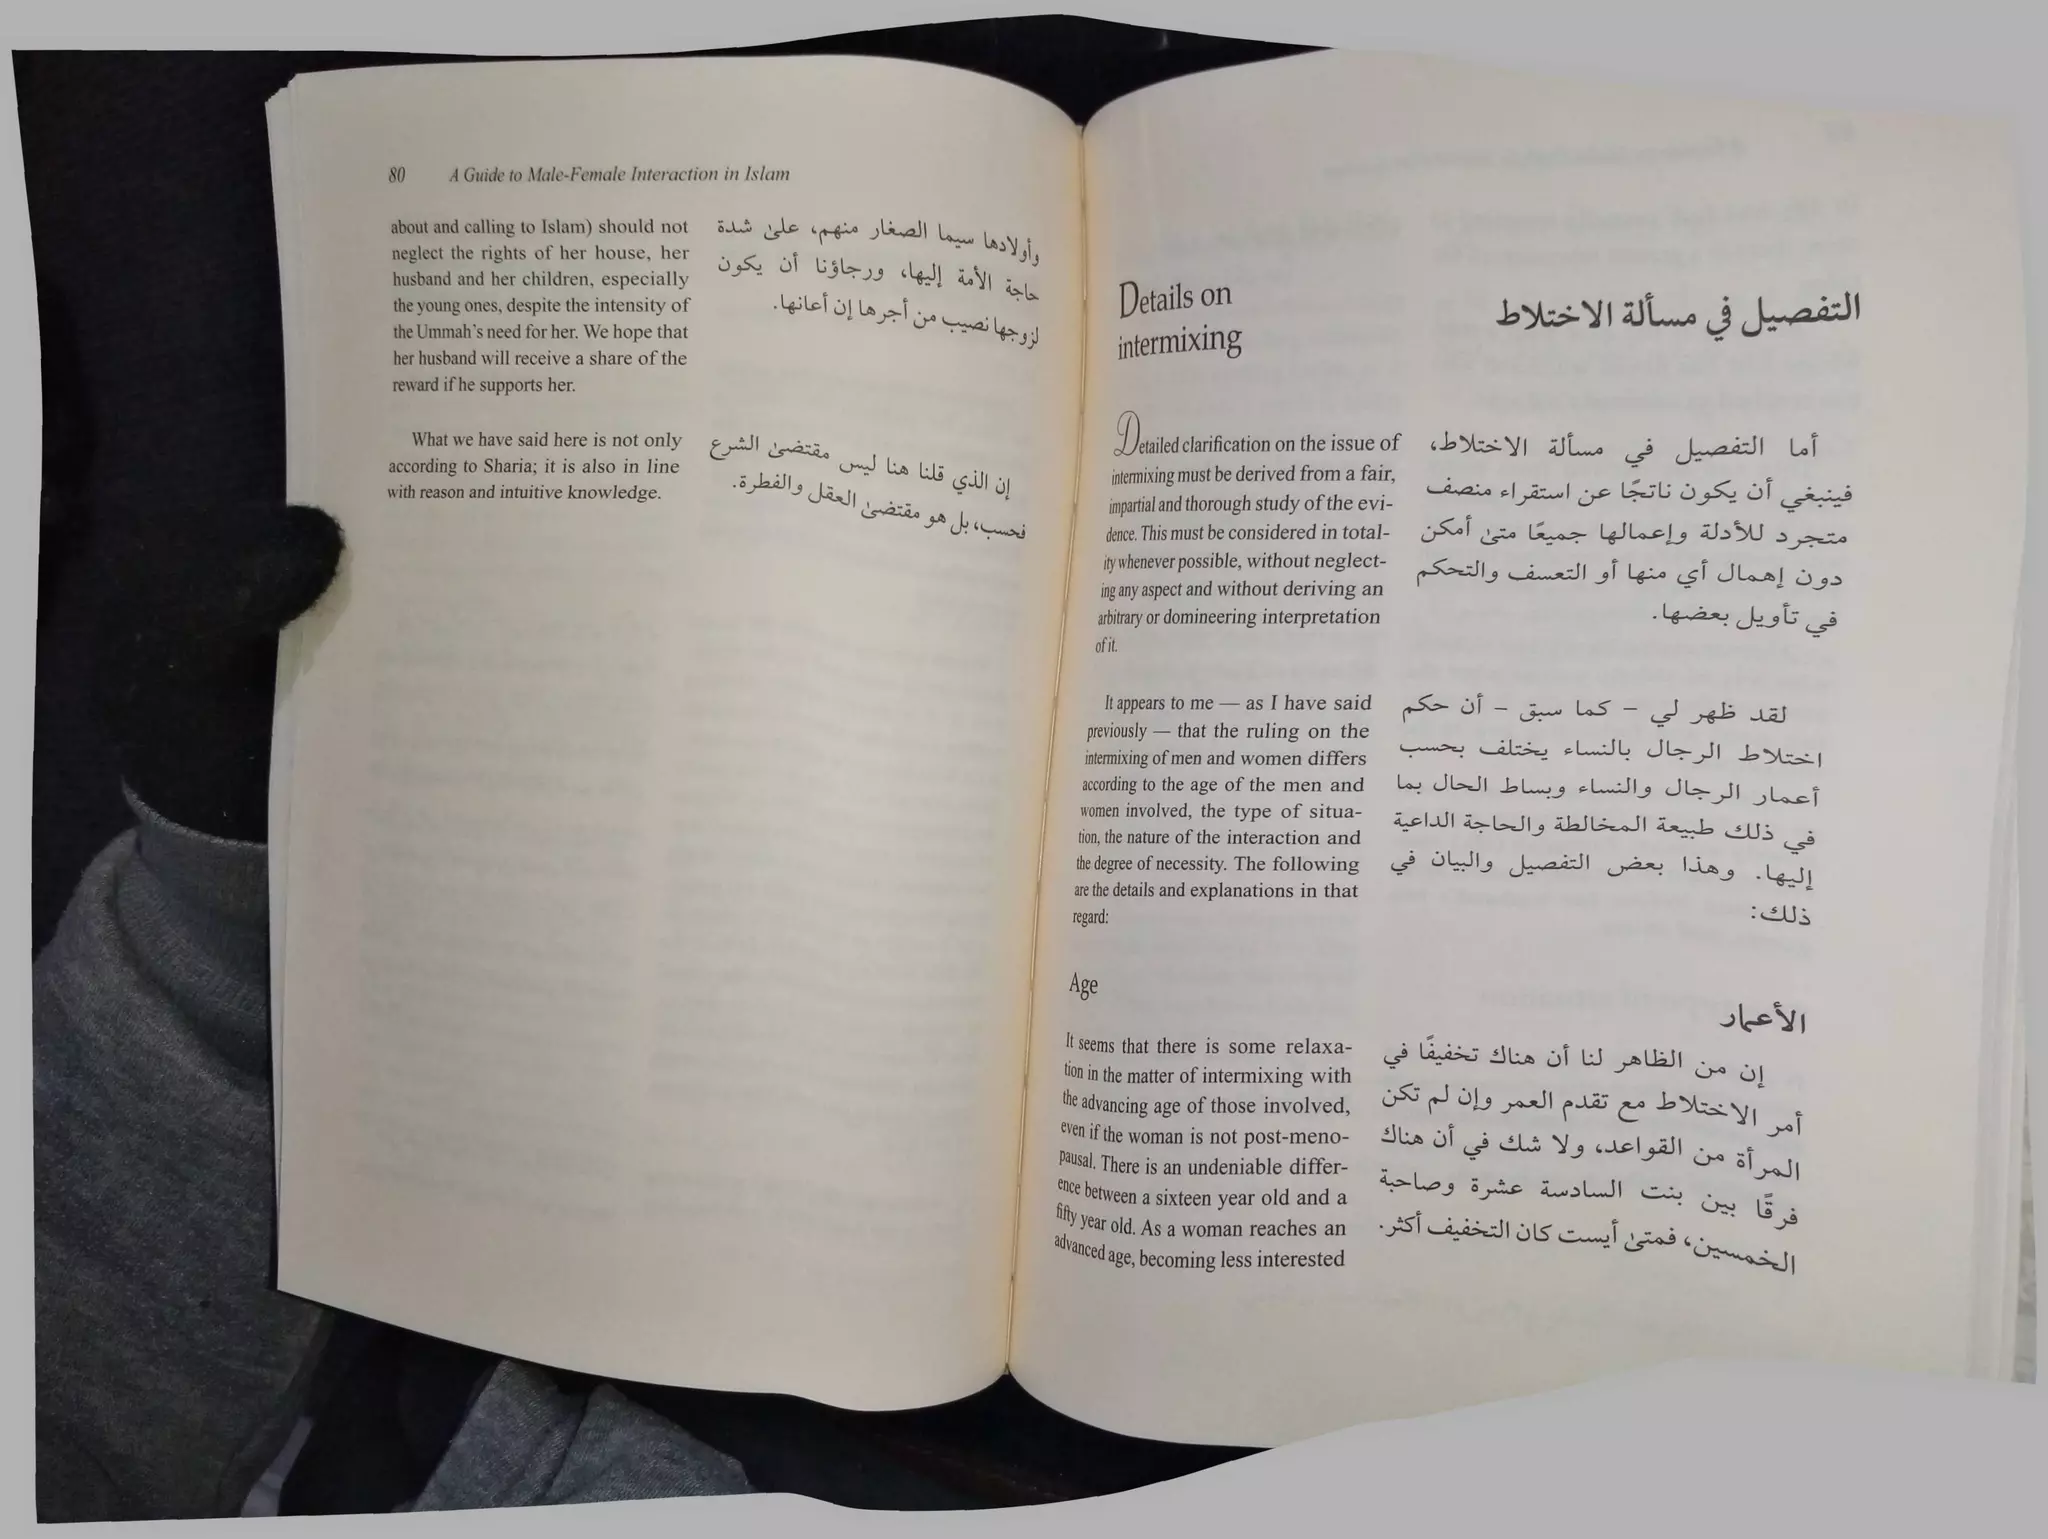 80 A Guide to Male-Female Interaction in Islam
about and calling to Islam) should not
neglect the rights of her house, her
husband and her children, especially
the young ones, despite the intensity of
the Ummah's need for her. We hope that
her husband will receive a share of the
reward if he supports her.
What we have said here is not only
according to Sharia; it is also in line
with reason and intuitive knowledge.
وأولادها سيما الصغار منهم، علىٰ شدة
حاجة الأمة إليها، ورجاؤنا أن يكون
لزوجها نصيب من أجرها إن أعانها.
إن الذي قلنا هنا ليس مقتضىٰ الشرع
فحسب، بل هو مقتضىٰ العقل والفطرة.
Details on
intermixing
Detailed clarification on the issue of
intermixing must be derived from a fair,
impartial and thorough study of the evi-
dence. This must be considered in total-
ity whenever possible, without neglect-
ing any aspect and without deriving an
arbitrary or domineering interpretation
of it.
It appears to me — as I have said
previously — that the ruling on the
intermixing of men and women differs
according to the age of the men and
women involved, the type of situa-
tion, the nature of the interaction and
the degree of necessity. The following
are the details and explanations in that
regard:
Age
It seems that there is some relaxa-
tion in the matter of intermixing with
the advancing age of those involved,
even if the woman is not post-meno-
pausal. There is an undeniable differ-
ence between a sixteen year old and a
fifty year old. As a woman reaches an
advanced age, becoming less interested
التفصيل في مسألة الاختلاط
أما التفصيل في مسألة الاختلاط،
فينبغي أن يكون ناتجًا عن استقراء منصف
متجرد للأدلة وإعمالها جميعًا متىٰ أمكن
دون إهمال أي منها أو التعسف والتحكم
في تأويل بعضها.
لقد ظهر لي – كما سبق – أن حكم
اختلاط الرجال بالنساء يختلف بحسب
أعمار الرجال والنساء وبساط الحال بما
في ذلك طبيعة المخالطة والحاجة الداعية
إليها. وهذا بعض التفصيل والبيان في
ذلك:
الأعمار
إن من الظاهر لنا أن هناك تخفيفًا في
أمر الاختلاط مع تقدم العمر وإن لم تكن
المرأة من القواعد، ولا شك في أن هناك
فرقًا بين بنت السادسة عشرة وصاحبة
الخمسين، فمتىٰ أيست كان التخفيف أكثر.